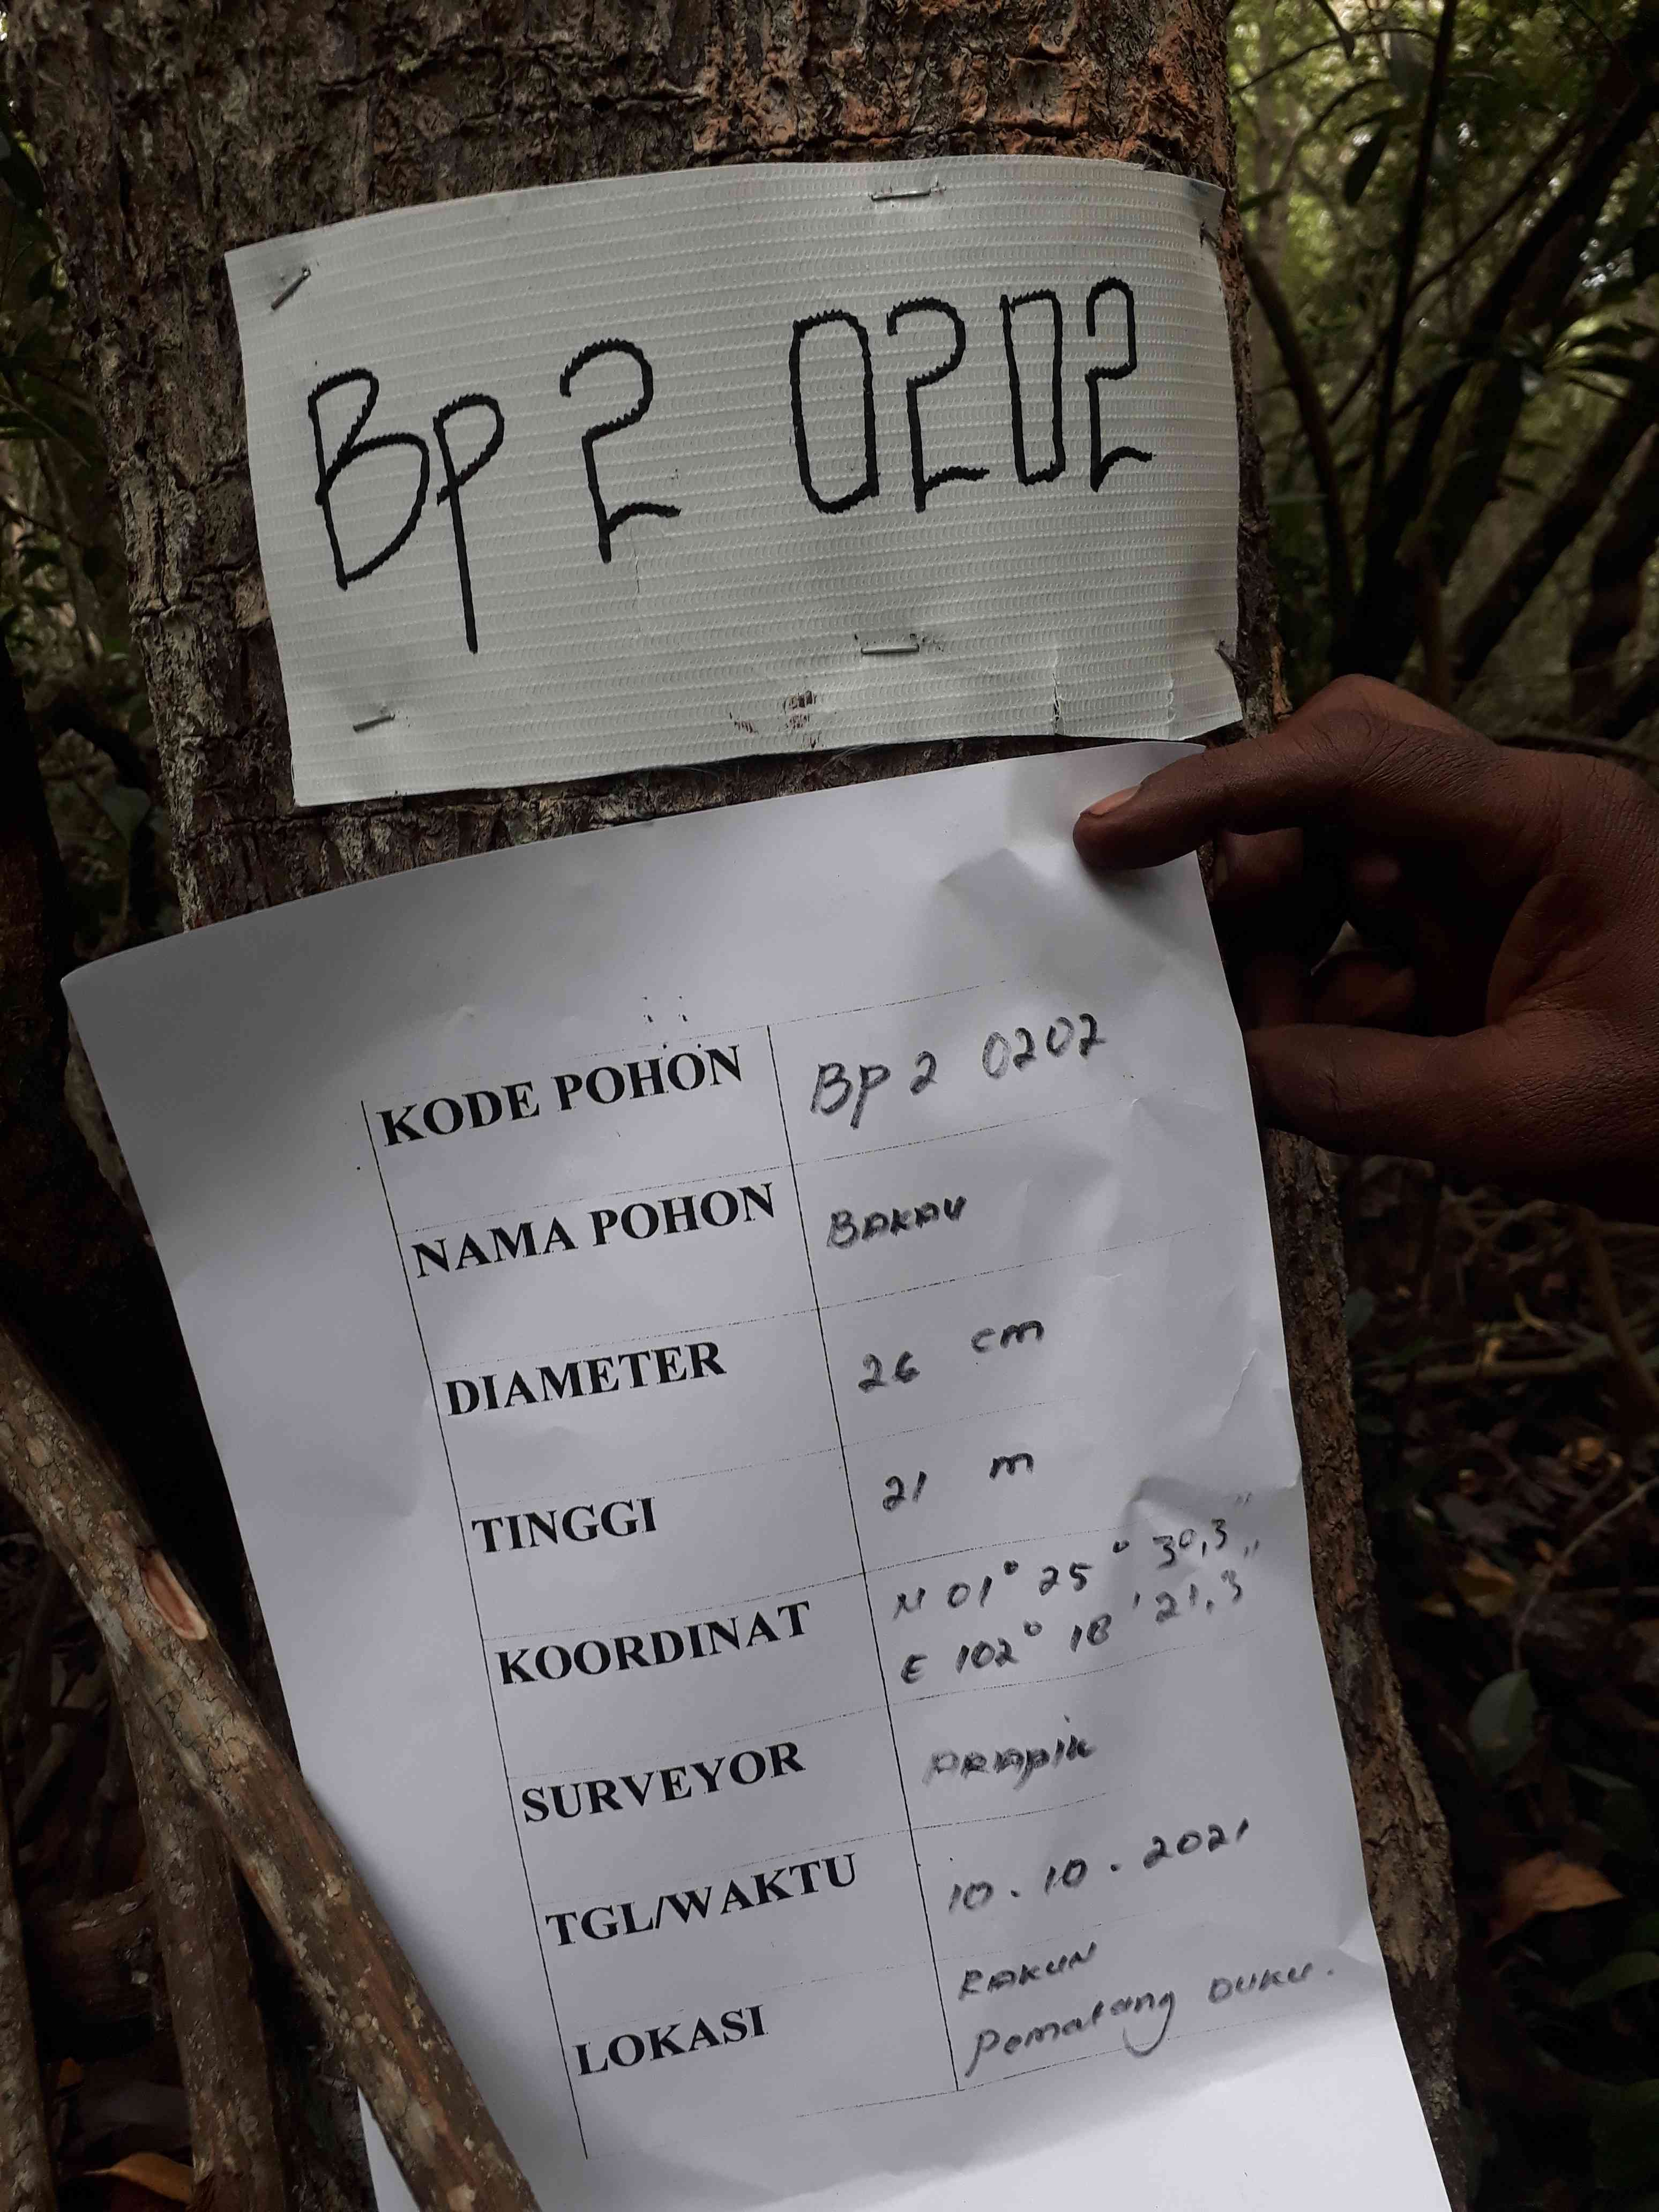 Bp 2 0202
KODE POHON Bp 2 0202
NAMA POHON BAKAU
DIAMETER 26 cm
TINGGI 21 m
KOORDINAT N 01° 25° 30,3"
E 102° 18' 21,3"
SURVEYOR
TGL/WAKTU 10.10.2021
LOKASI RAKUN
Pematang DUKU.